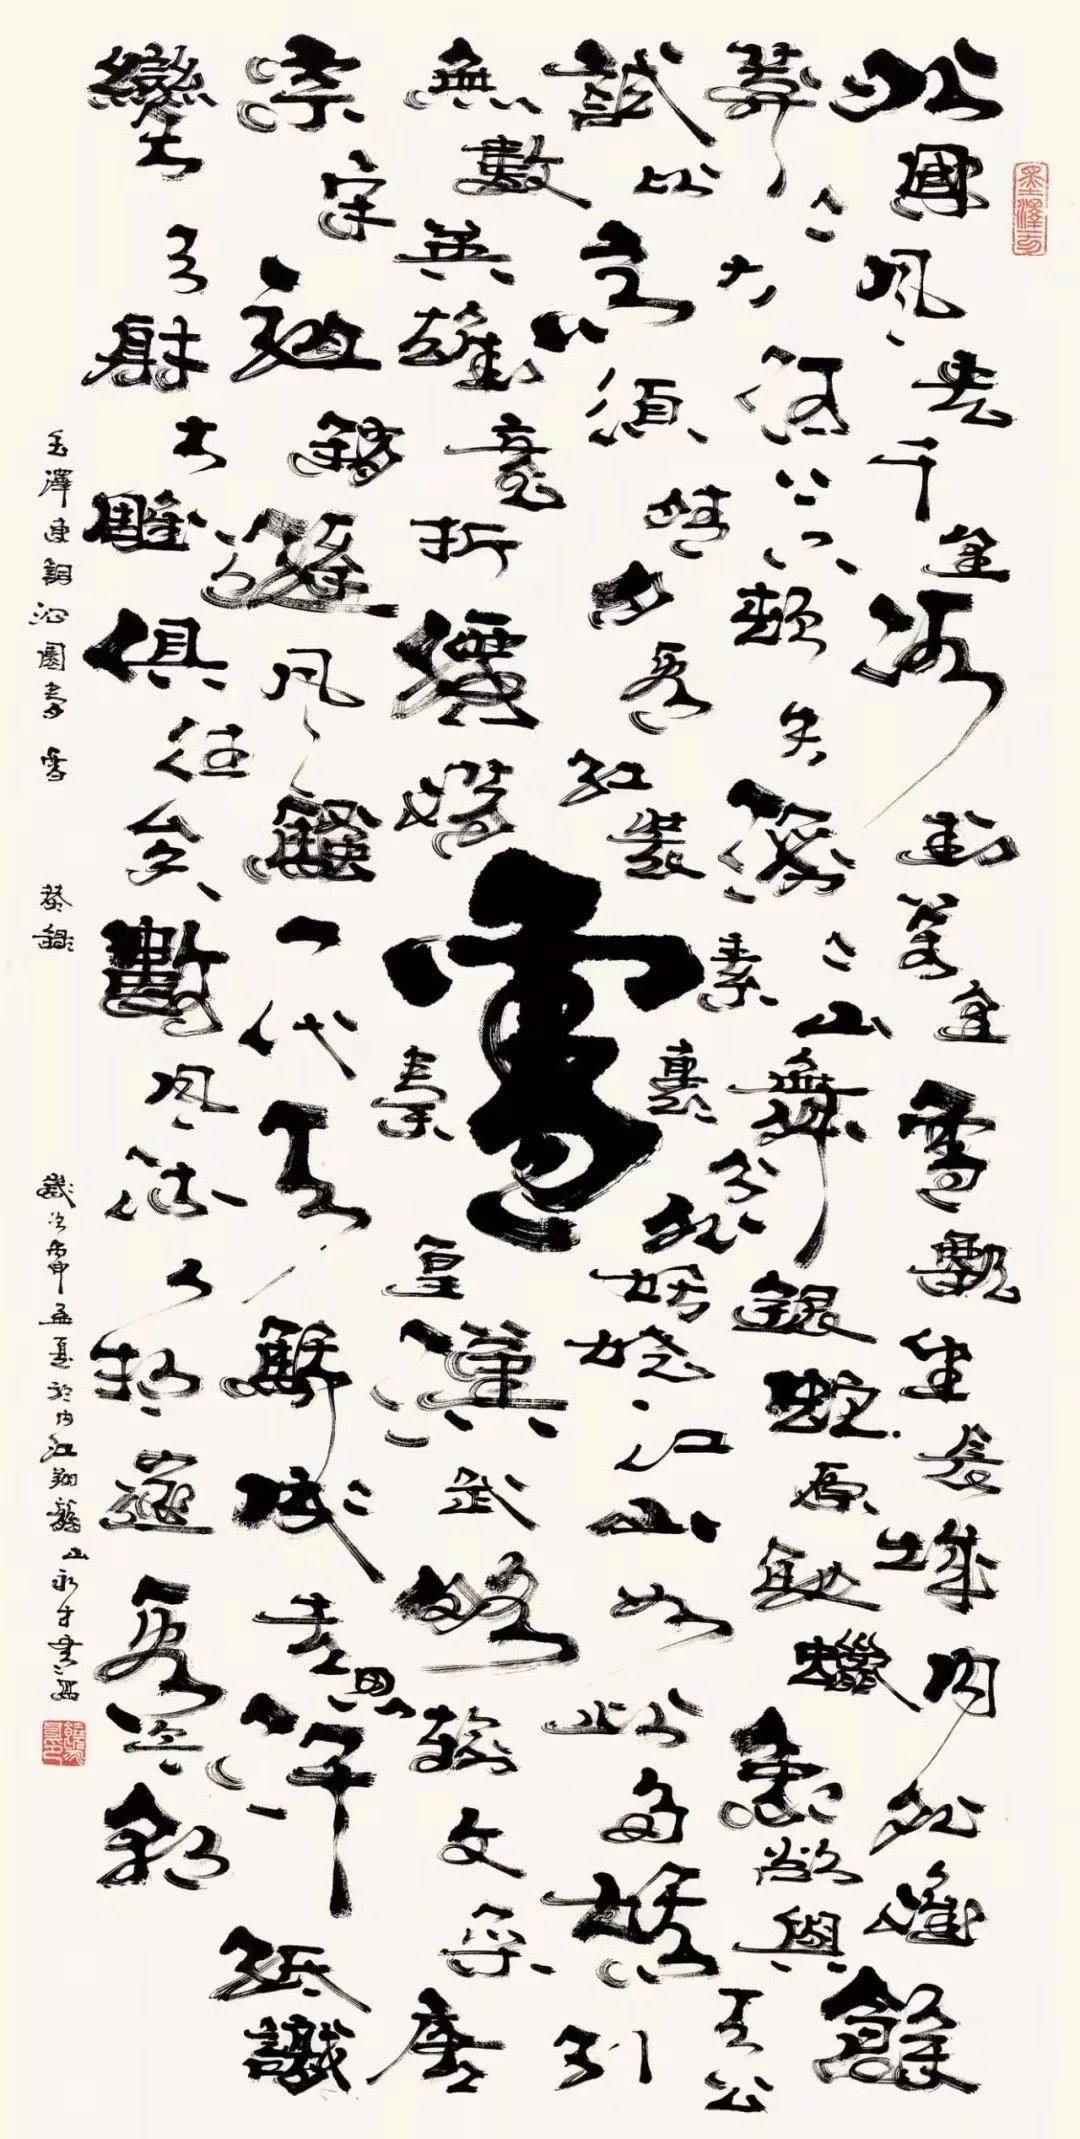 北國風光千里冰封萬里雪飄望長城内外惟餘
莽〻大河上下頓失滔〻山舞銀蛇原馳蠟象欲與天公
試比高須晴日看紅裝素裹分外妖嬈江山如此多嬌引
無數英雄競折腰惜秦皇漢武略輸文采唐
宗宋祖稍遜風騷一代天驕成吉思汗祇識
彎弓射大雕俱往矣數風流人物還看今朝
雪
毛澤東詞沁園春雪
歲次申孟夏於内江翔龍山永才書